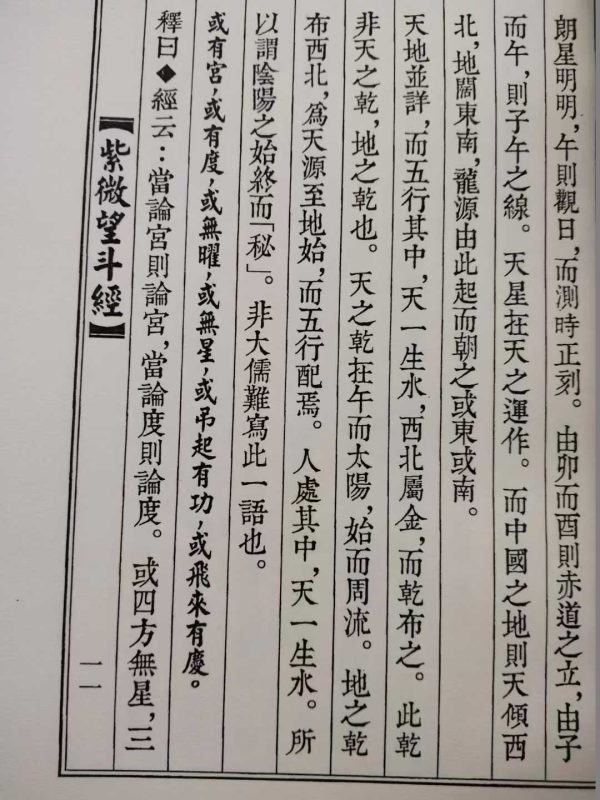 朗星明明，午則觀日，而測時正刻。由卯而酉則赤道之立，由子
而午，則子午之線。天星在天之運作。而中國之地則天傾西
北，地闕東南，龍源由此起而朝之或東或南。
天地並詳，而五行其中，天一生水，西北屬金，而乾布之。此乾
非天之乾，地之乾也。天之乾在午而太陽，始而周流。地之乾
布西北，為天源至地始，而五行配焉。人處其中，天一生水。所
以謂陰陽之始終而「秘」。非大儒難寫此一語也。
或有宮，或有度，或無曜，或無星，或吊起有功，或飛來有慶。
釋曰◆經云：當論宮則論宮，當論度則論度。或四方無星，三
【紫微望斗經】
一一